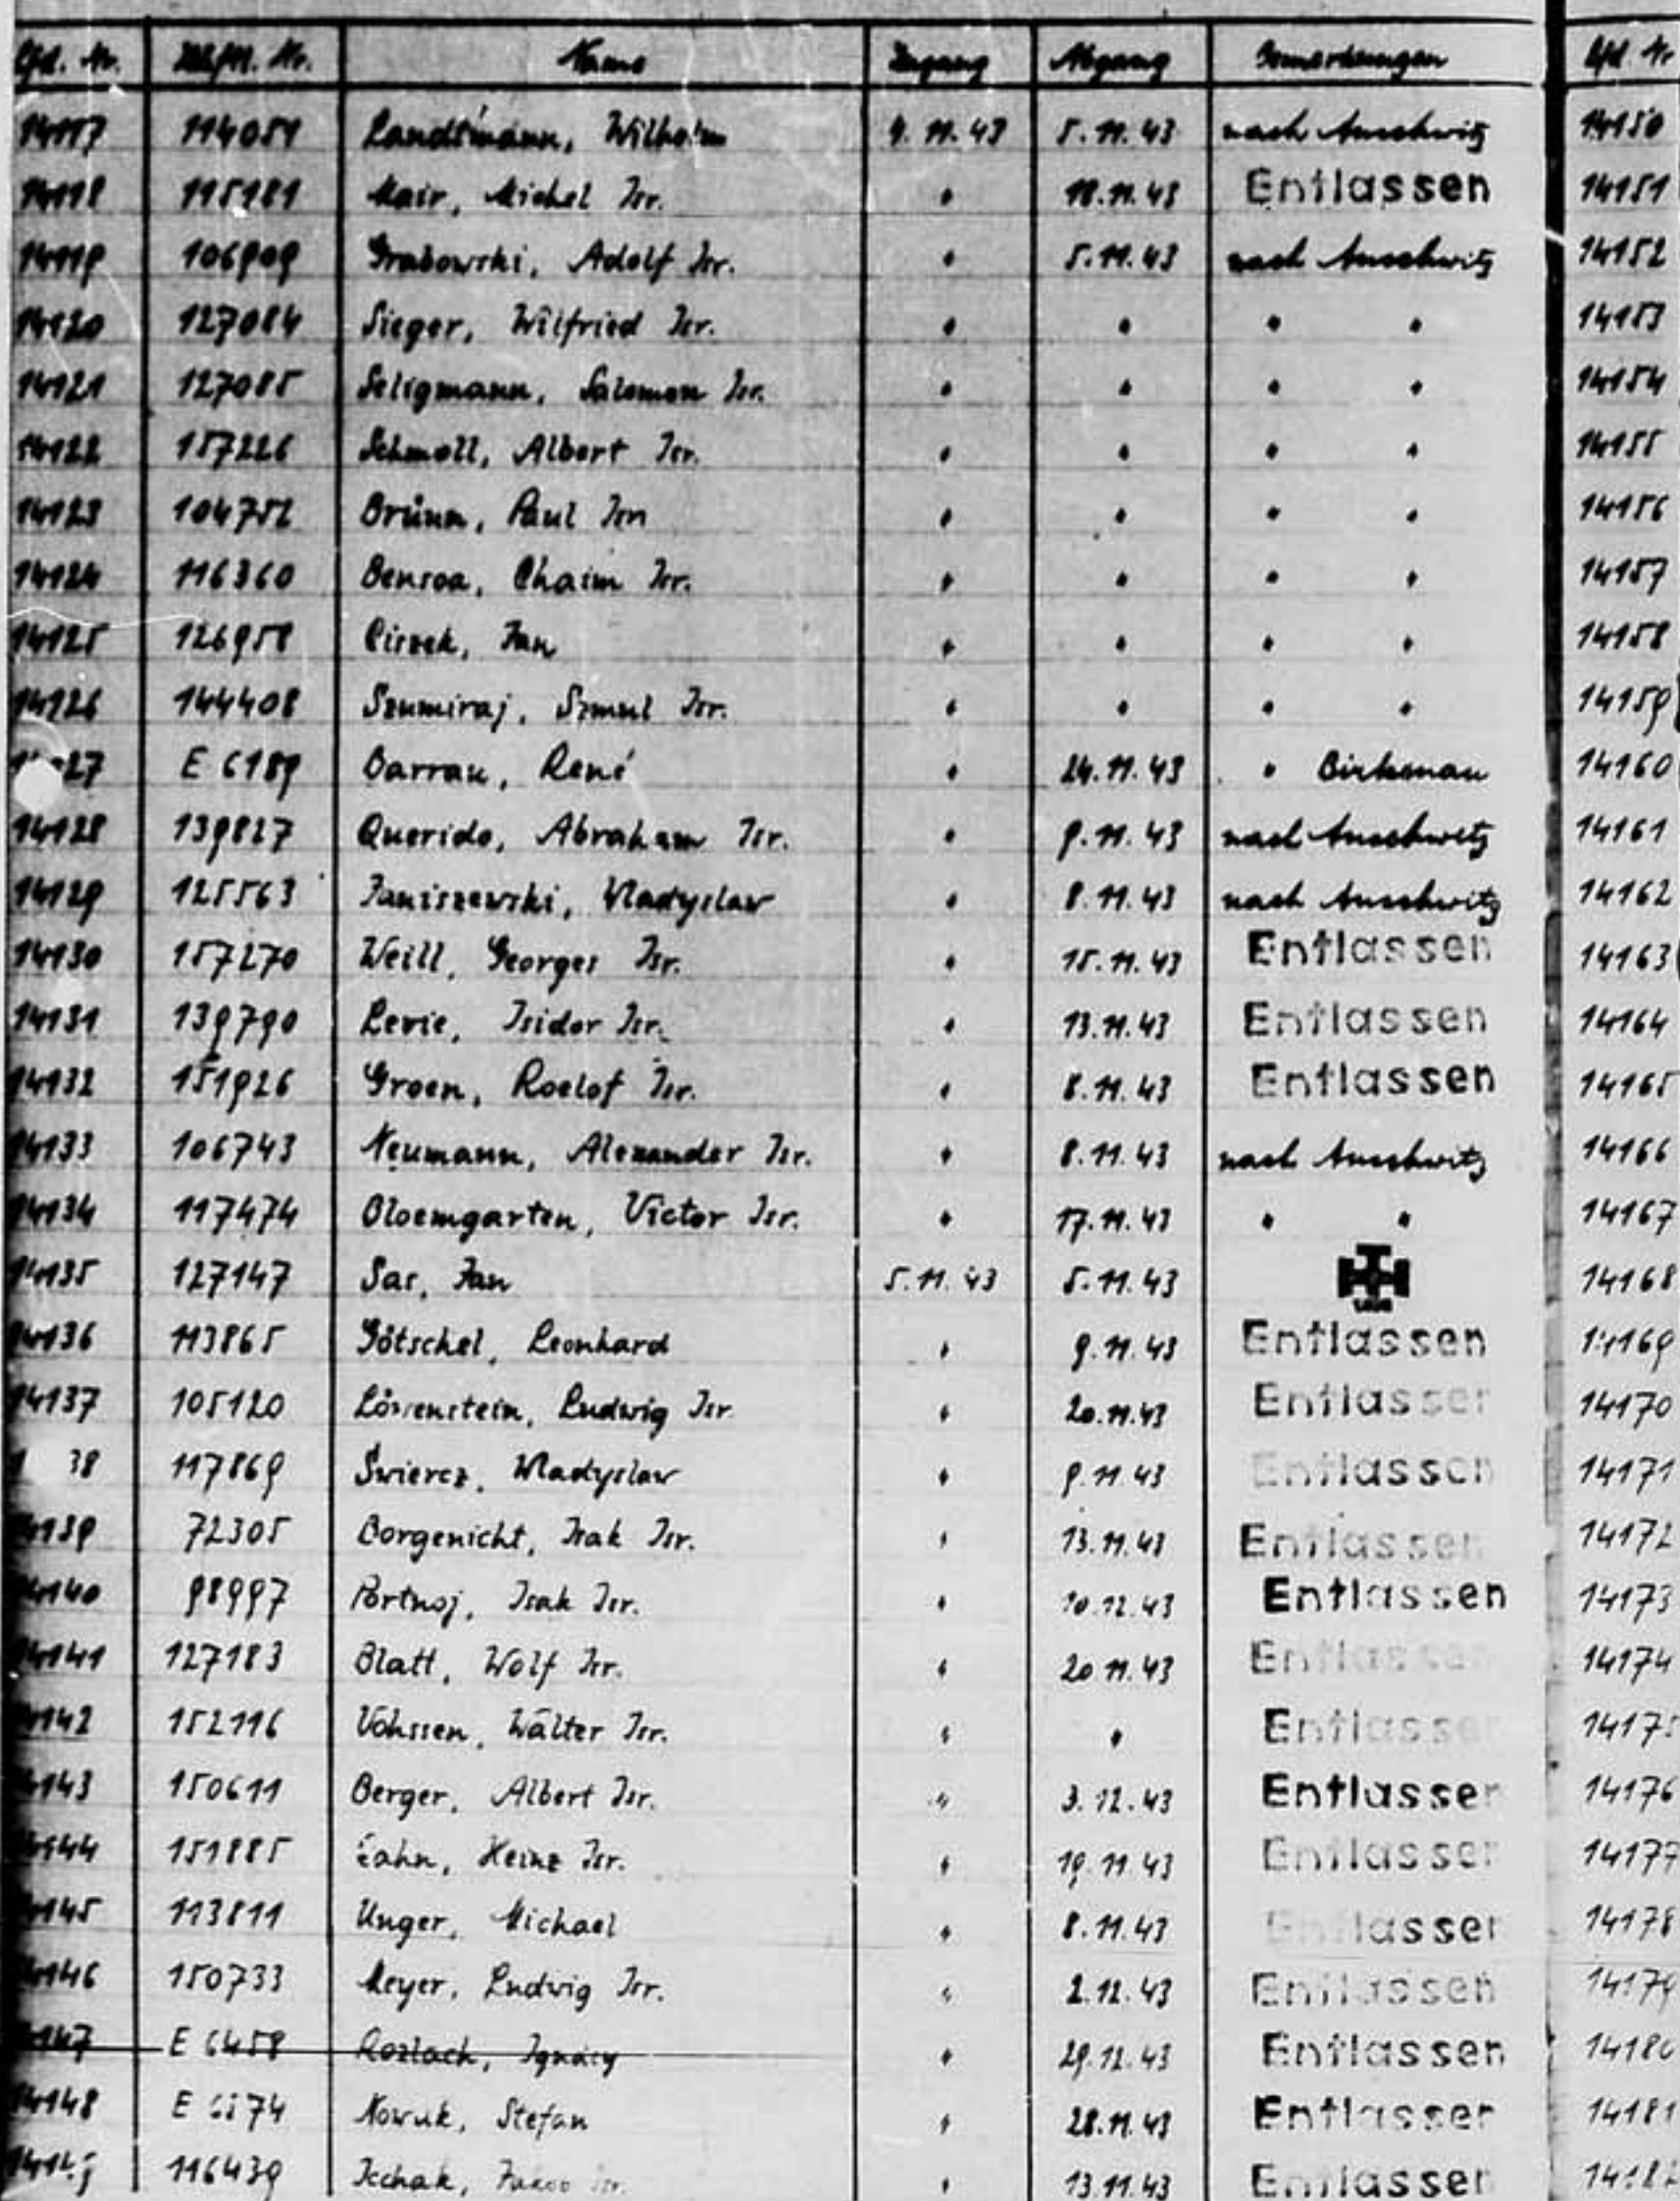 Lfd. Nr. Häftl. Nr. Name Zugang Abgang Bemerkungen Lfd. Nr
14117 114051 Landtmann, Wilhelm 4. 11. 43 5. 11. 43 nach Auschwitz 14150
14118 115181 Mair, Michel Isr. " 18. 11. 43 Entlassen 14151
14119 106909 Grabowski, Adolf Isr. " 5. 11. 43 nach Auschwitz 14152
14120 127084 Sieger, Wilfried Isr. " " " " 14153
14121 127085 Seligmann, Salomon Isr. " " " " 14154
14122 157226 Schmoll, Albert Isr. " " " " 14155
14123 104752 Brünn, Paul Isr. " " " " 14156
14124 116360 Bensoa, Chaim Isr. " " " " 14157
14125 126958 Ciszek, Jan " " " " 14158
14126 144408 Szumiraj, Szmul Isr. " " " " 14159
27 E 6189 Barrau, René " 24. 11. 43 " Birkenau 14160
14128 139827 Querido, Abraham Isr. " 9. 11. 43 nach Auschwitz 14161
14129 125563 Janiszewski, Wladyslaw " 8. 11. 43 nach Auschwitz 14162
14130 157270 Weill, Georges Isr. " 15. 11. 43 Entlassen 14163
14131 139790 Levie, Isidor Isr. " 13. 11. 43 Entlassen 14164
14132 151926 Groen, Roelof Isr. " 8. 11. 43 Entlassen 14165
14133 106743 Neumann, Alexander Isr. " 8. 11. 43 nach Auschwitz 14166
14134 117474 Bloemgarten, Victor Isr. " 17. 11. 43 " " 14167
14135 127147 Sas, Jan 5. 11. 43 5. 11. 43 14168
14136 113865 Götschel, Leonhard " 9. 11. 43 Entlassen 14169
14137 105120 Löwenstein, Ludwig Isr. " 20. 11. 43 Entlassen 14170
1 38 117869 Swiercz, Wladyslaw " 9. 11. 43 Entlassen 14171
14139 72305 Borgenicht, Isak Isr. " 13. 11. 43 Entlassen 14172
14140 98997 Portnoj, Isak Isr. " 10. 12. 43 Entlassen 14173
14141 127183 Blatt, Wolf Isr. " 20. 11. 43 Entlassen 14174
14142 152116 Vohssen, Walter Isr. " " Entlassen 1417
14143 150611 Berger, Albert Isr. " 3. 12. 43 Entlassen 14176
14144 151885 Cahn, Heinz Isr. " 19. 11. 43 Entlassen 14177
14145 113811 Unger, Michael " 8. 11. 43 Entlassen 14178
14146 150733 Meyer, Ludwig Isr. " 2. 12. 43 Entlassen 14179
14147 E 6458 Rozlach, Ignacy " 29. 12. 43 Entlassen 14180
14148 E 74 Nowak, Stefan " 28. 11. 43 Entlassen 14181
116439 " 13. 11. 43 Entlassen